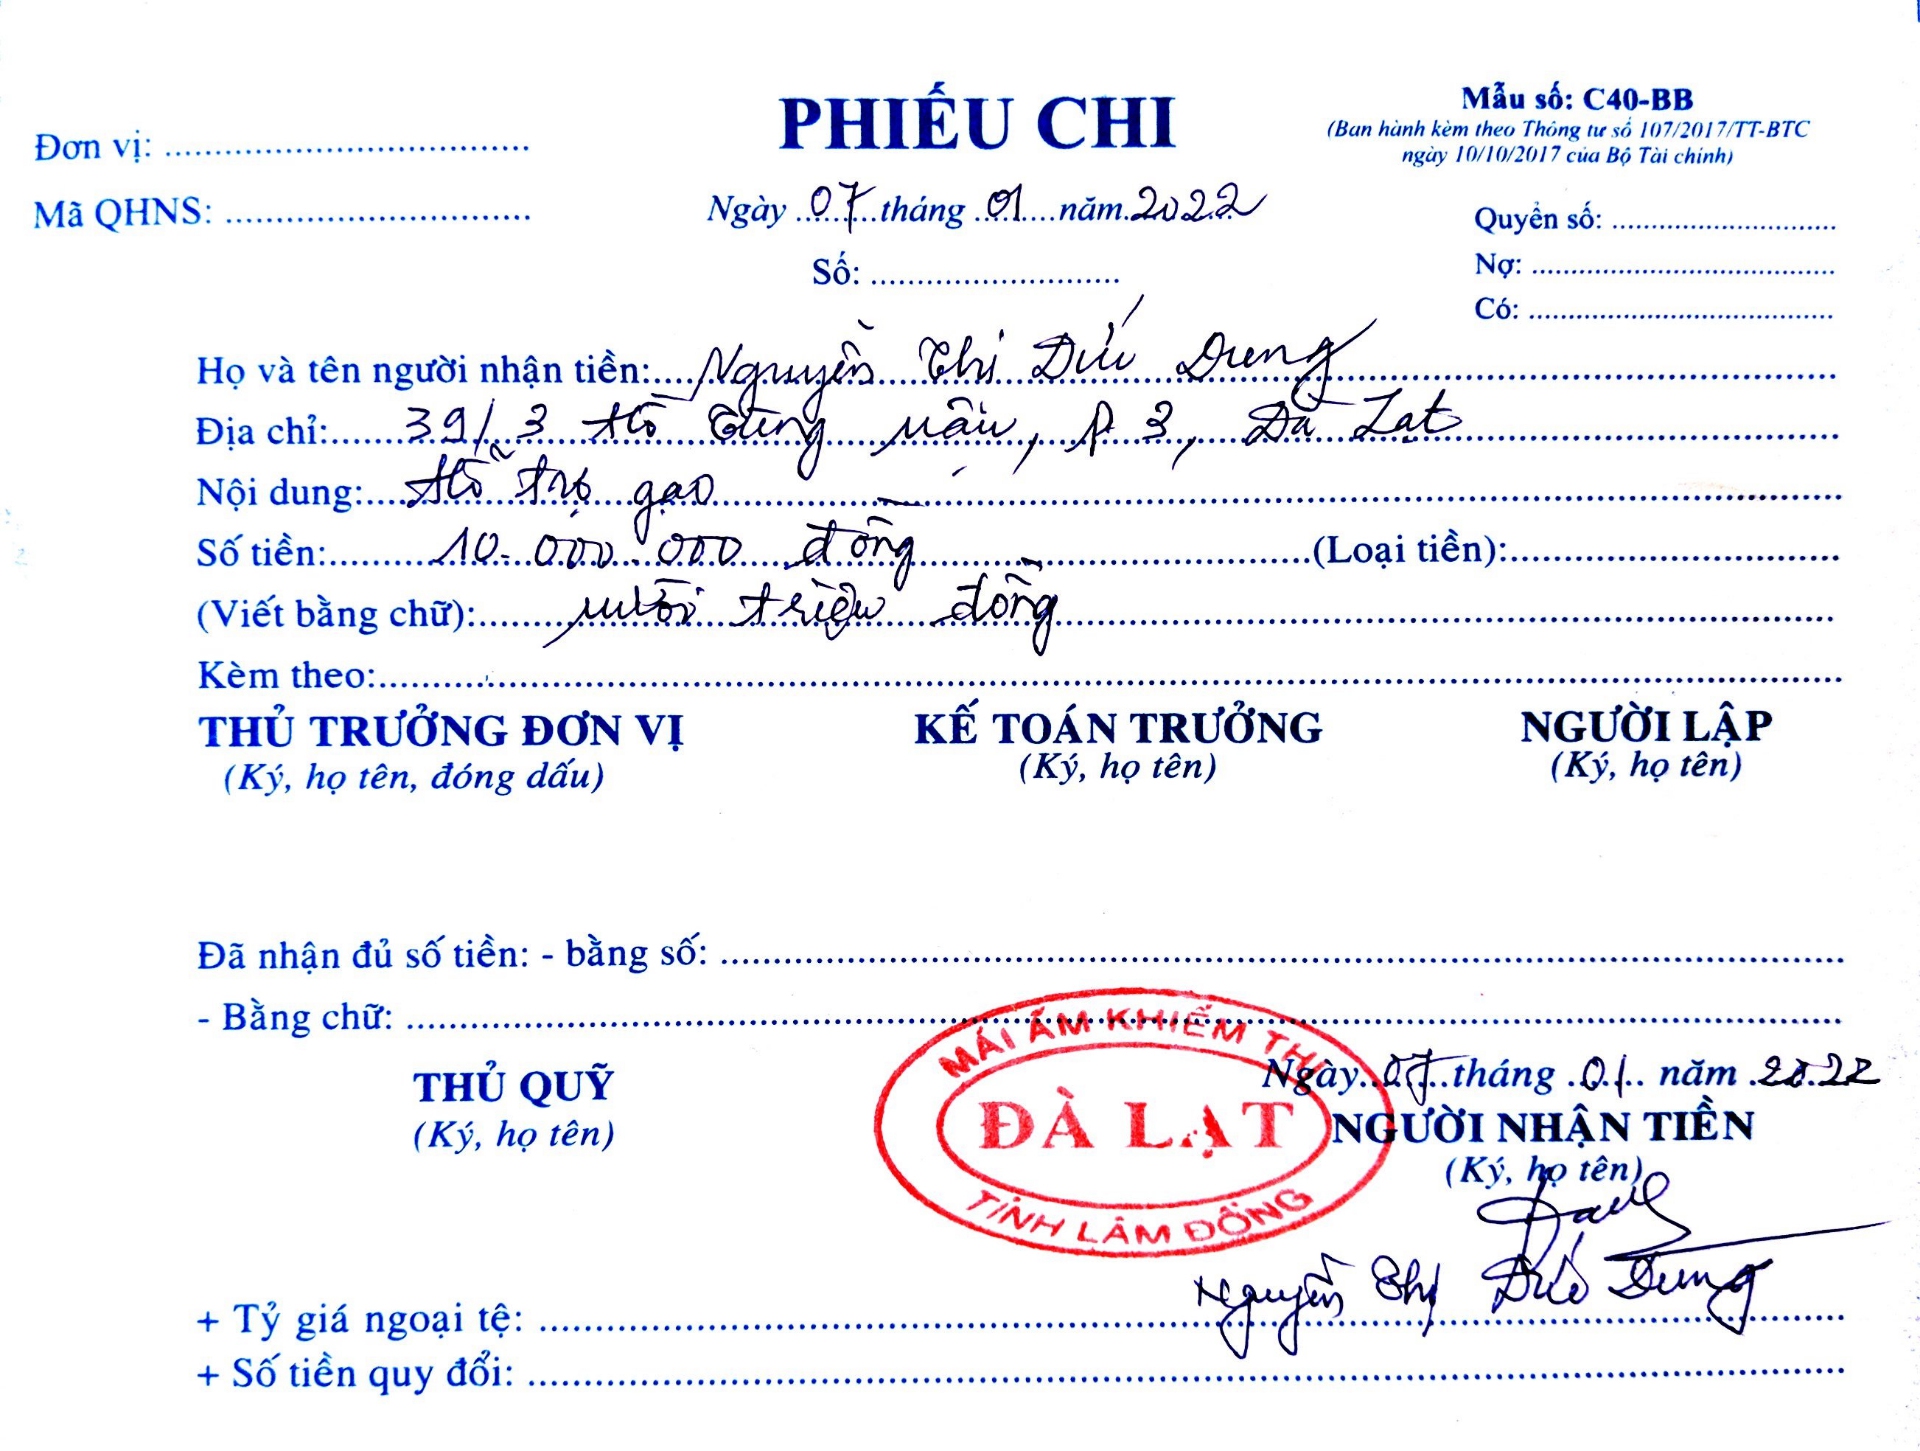 PHIẾU CHI
Mẫu số: C40-BB
(Ban hành kèm theo Thông tư số 107/2017/TT-BTC
ngày 10/10/2017 của Bộ Tài chính)
Đơn vị: ....................................
Mã QHNS: ..............................
Ngày 07 tháng 01 năm 2022
Số: .........................
Quyển số: ............................
Nợ: ......................................
Có: ......................................
Họ và tên người nhận tiền: Nguyễn Thị Đức Dung
Địa chỉ: 39/3 Hồ Tùng Mậu, P 3, Đà Lạt
Nội dung: Hỗ trợ gạo
Số tiền: 10.000.000 đồng (Loại tiền):..............................
(Viết bằng chữ): Mười triệu đồng
Kèm theo:..............................
THỦ TRƯỞNG ĐƠN VỊ KẾ TOÁN TRƯỞNG NGƯỜI LẬP
(Ký, họ tên, đóng dấu) (Ký, họ tên) (Ký, họ tên)
Đã nhận đủ số tiền: - bằng số: ..............................
- Bằng chữ: ..............................
MÁI ẤM KHIẾM THỊ
ĐÀ LẠT
TỈNH LÂM ĐỒNG
Ngày 07 tháng 01 năm 2022
THỦ QUỸ NGƯỜI NHẬN TIỀN
(Ký, họ tên) (Ký, họ tên)
Nguyễn Thị Đức Dung
+ Tỷ giá ngoại tệ: ..............................
+ Số tiền quy đổi: ..............................